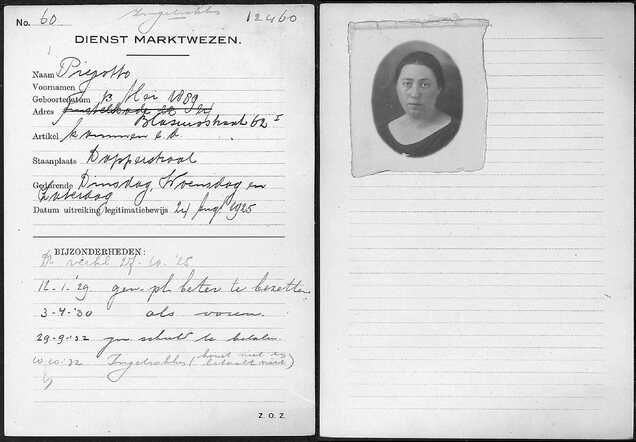 No. 60 Ingetrokken 12460
DIENST MARKTWEZEN.
Naam Prijotto
Voornamen
Geboortedatum 13 Mei 1889
Adres
Blasiusstraat 62 I
Artikel kammen e.d
Staanplaats Dapperstraat
Gedurende Dinsdag, Woensdag en
Zaterdag
Datum uitreiking legitimatiebewijs 24 Aug 1925
BIJZONDERHEDEN:
27-10-'25
12-1-'29 gew. pl. beter te bezetten
3-4-'30 als voren.
29-9-'32 schuld te betalen
10-10-'32 Ingetrokken (komt niet en betaalt niet)
Z. O. Z.